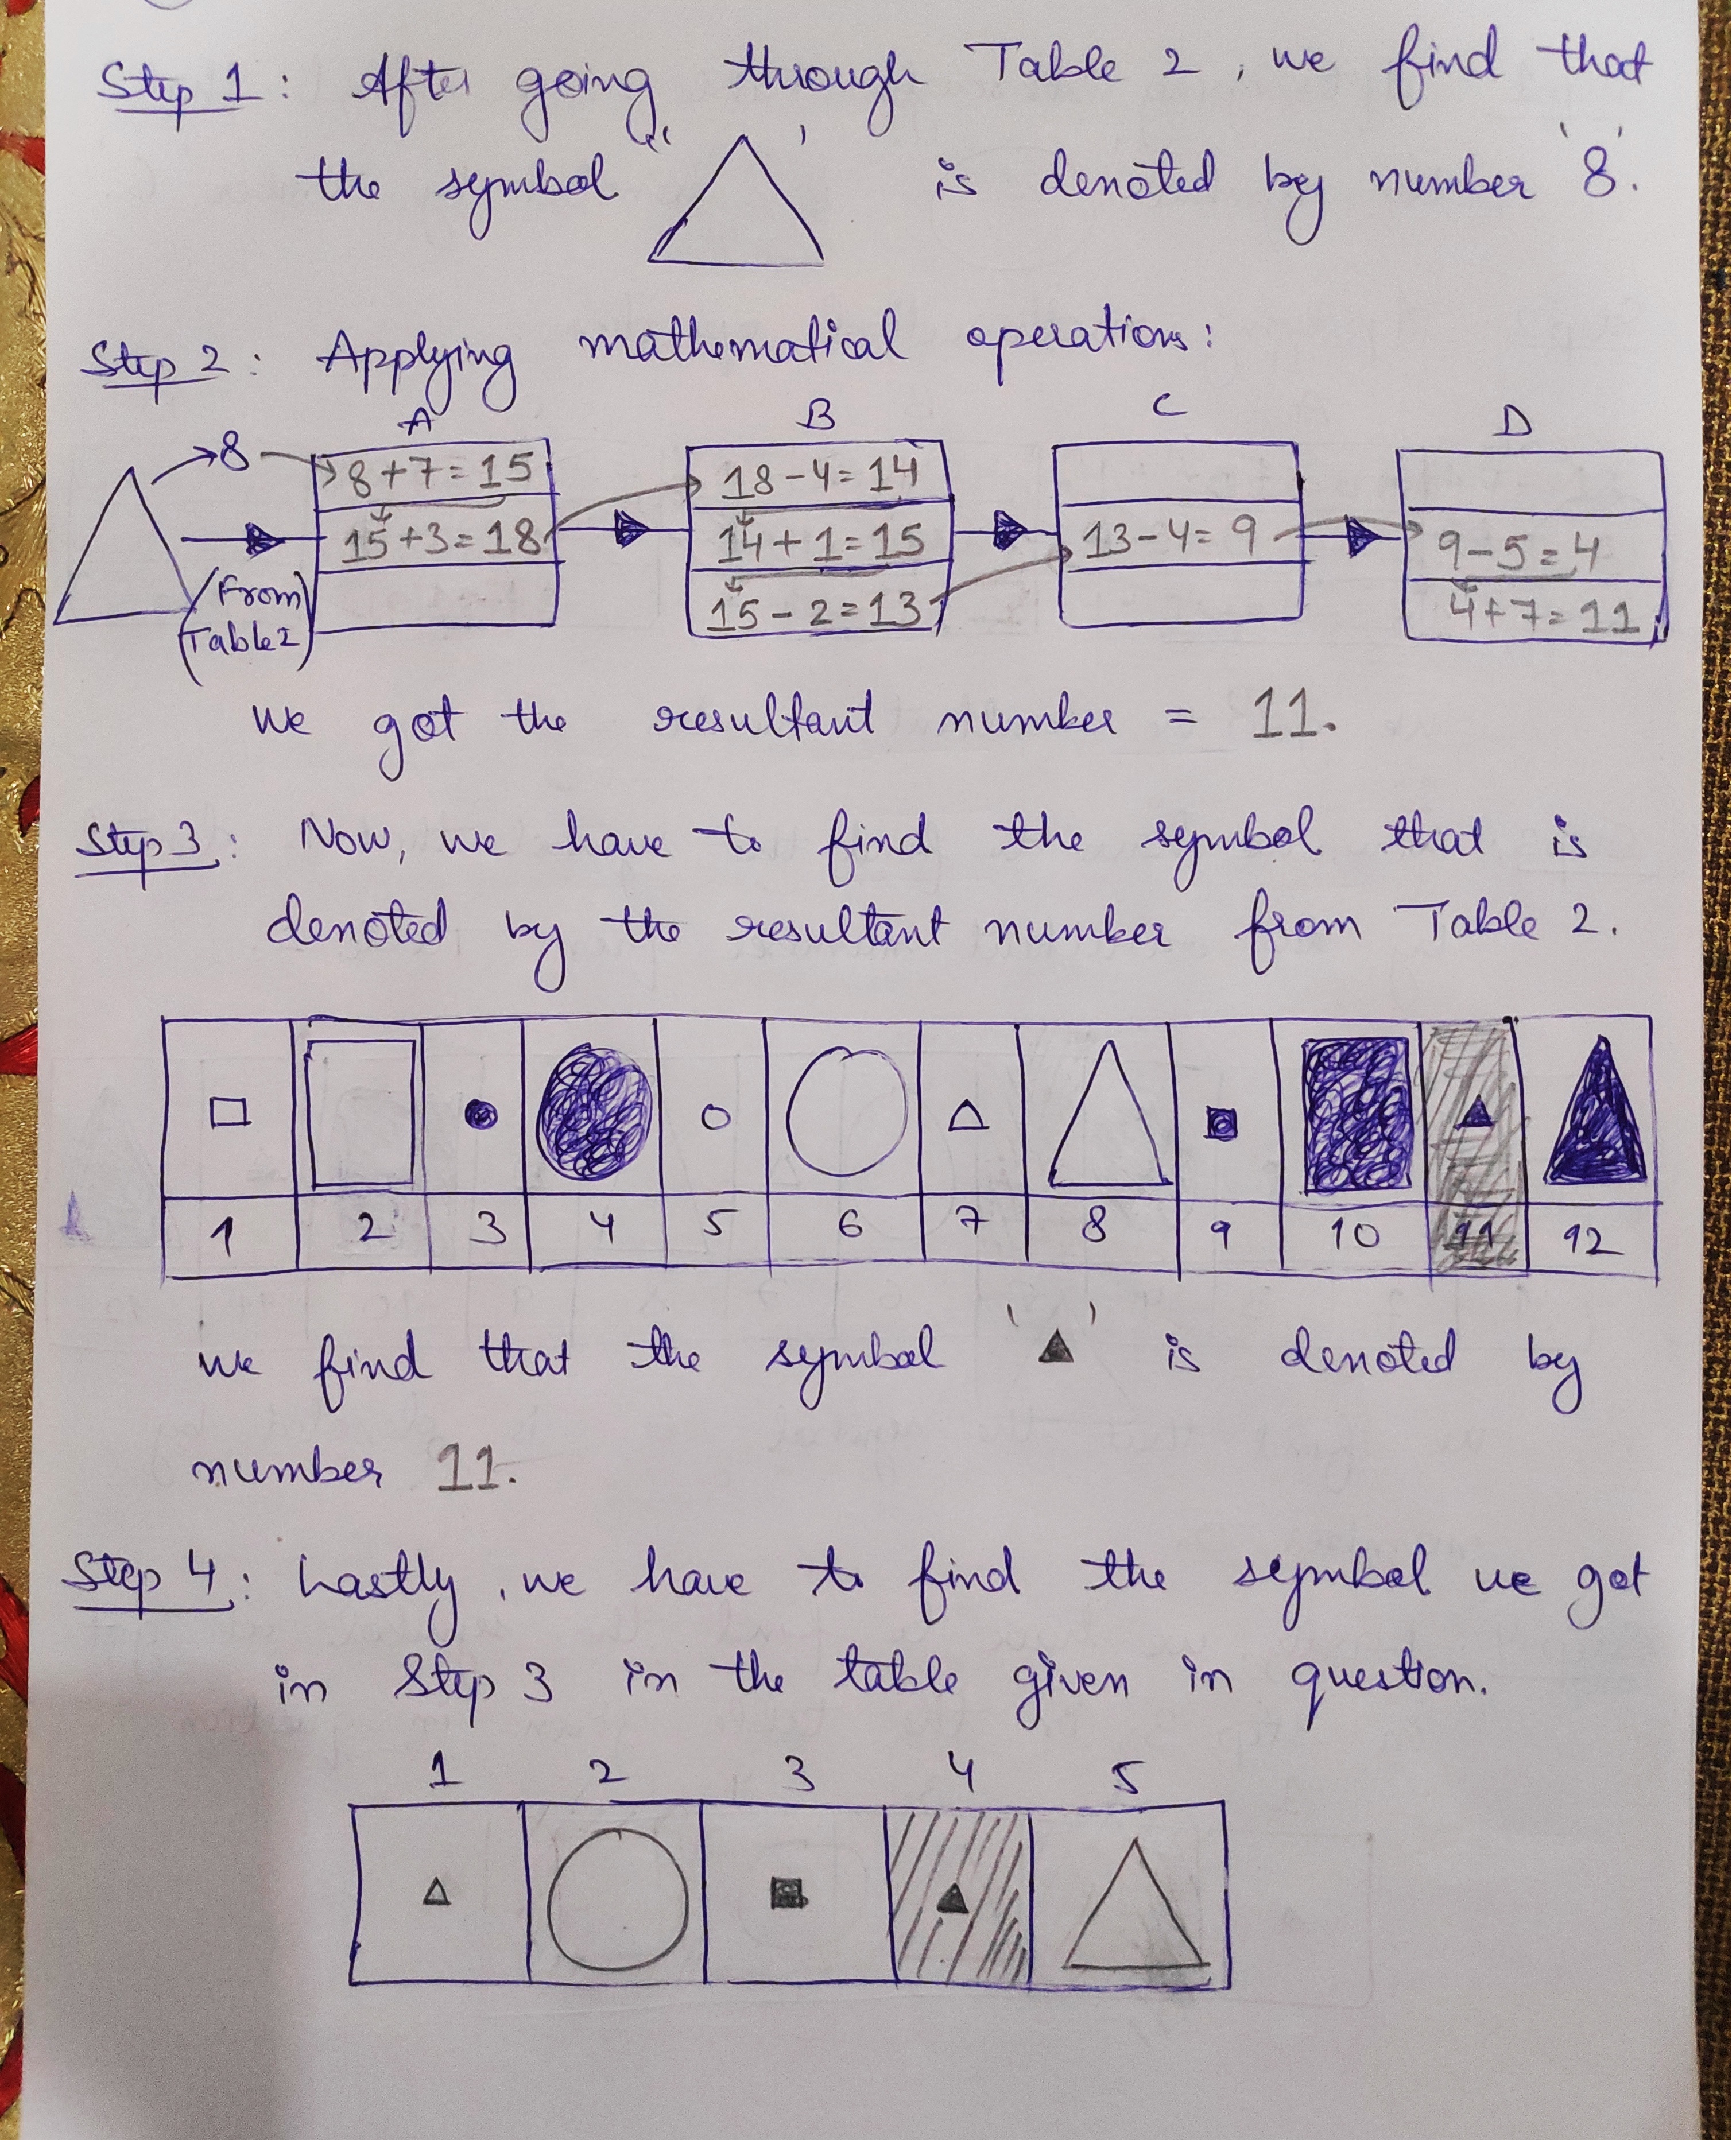 Step 1 : After going through Table 2, we find that
the symbol " ' is denoted by number '8'.
Step 2 : Applying mathematical operations :
A B C D
8 8+7=15 18-4=14
15+3=18 14+1=15 13-4=9 9-5=4
(From Table 2) 15-2=13 4+7=11
We got the resultant number = 11.
Step 3 : Now, we have to find the symbol that is
denoted by the resultant number from Table 2.
1 2 3 4 5 6 7 8 9 10 11 12
we find that the symbol ' ' is denoted by
number 11.
Step 4 : Lastly, we have to find the symbol we got
in Step 3 in the table given in question.
1 2 3 4 5